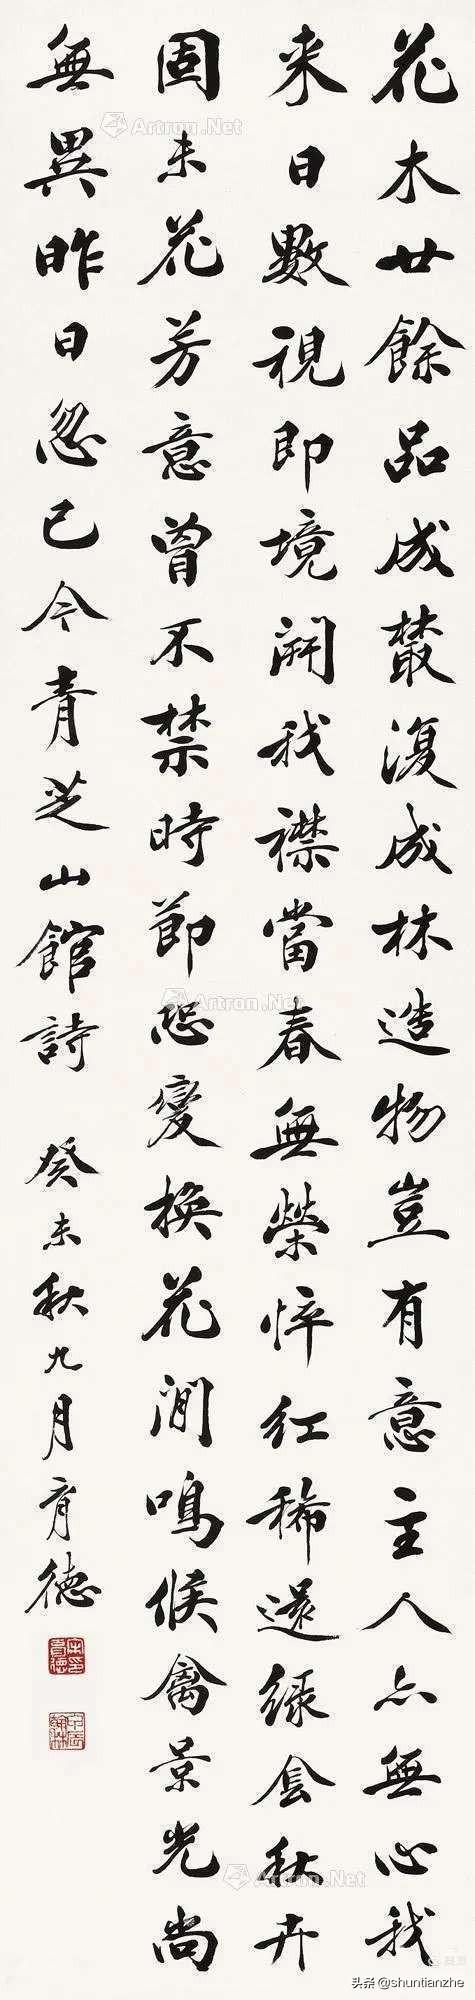 花木廿餘品成叢復成林造物豈有意主人亦無心我
來日數視即境開我襟當春無榮悴紅稀還綠套秋卉
固未花芳意曾不禁時節恐變換花間鳴候禽景光尚
無異昨日忽已今青芝山館詩 癸未秋九月育德
Artron.Net
Artron.Net
Artron.Net
头条@shuntianzhe